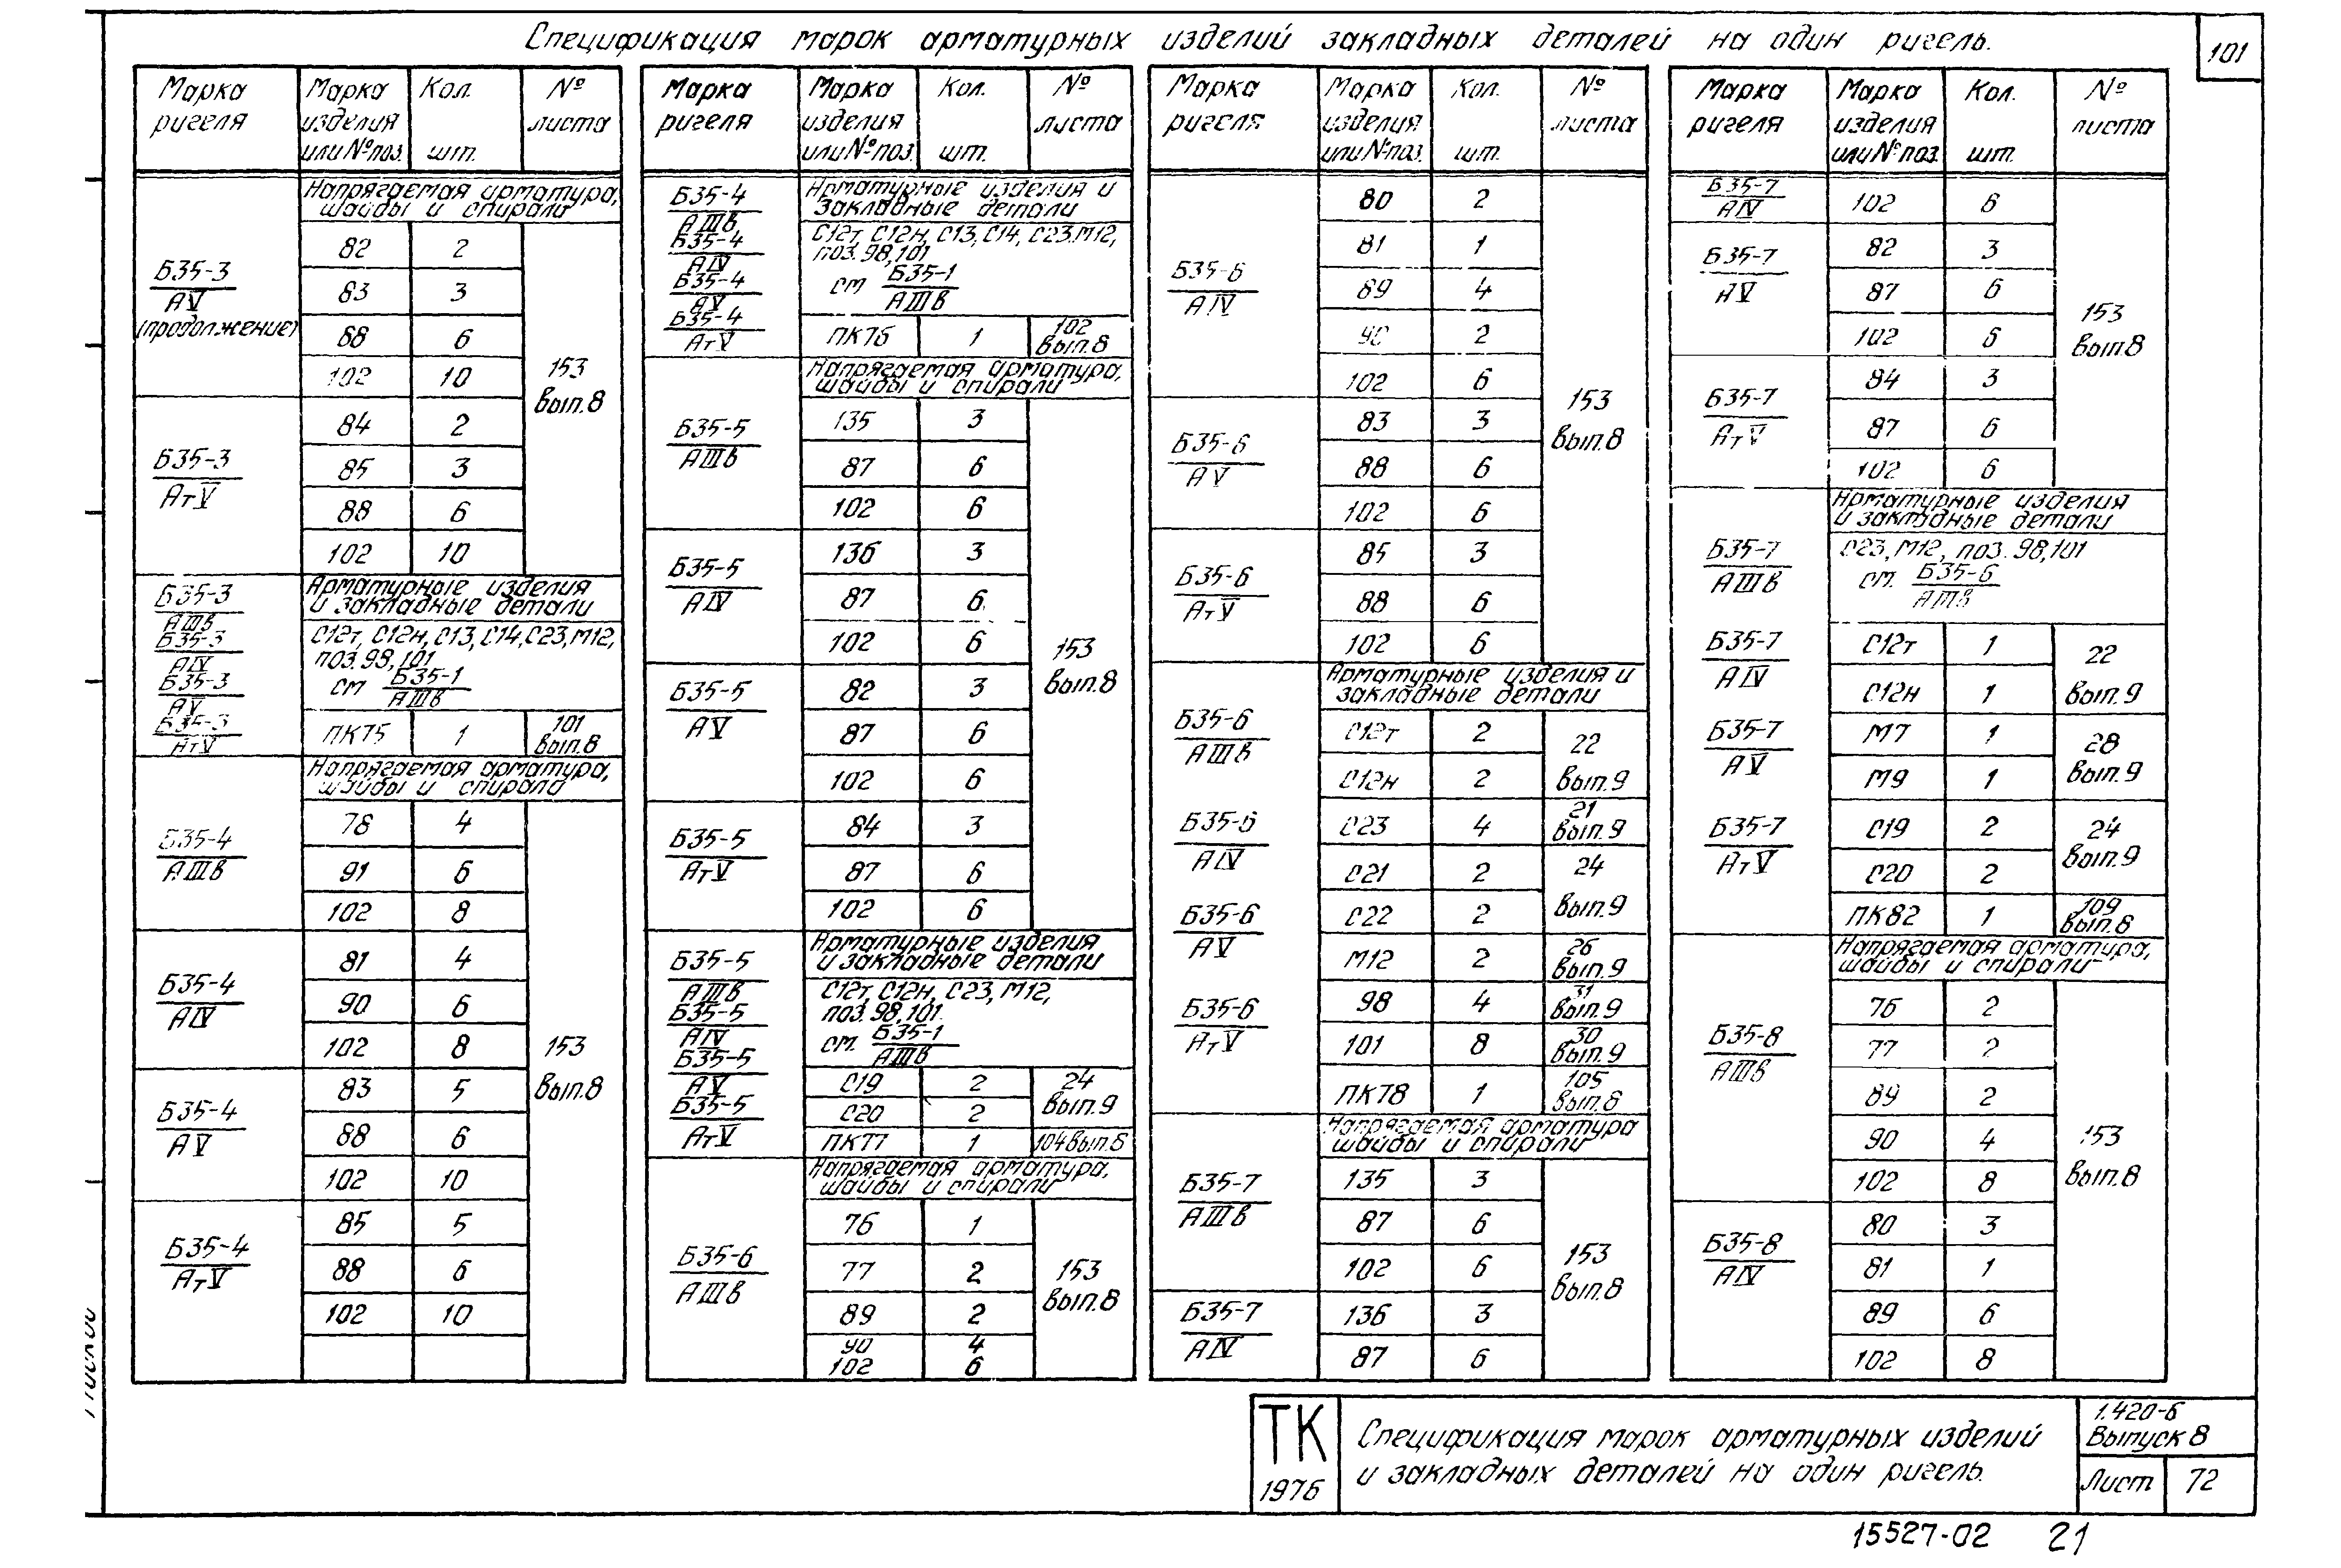 Спецификация марок арматурных изделий закладных деталей на один ригель.
101
Марка ригеля | Марка изделия или № поз. | Кол. шт. | № листа
Напрягаемая арматура,
шайбы и спирали
Б35-3
АV
(продолжение)
82 2
83 3
88 6
102 10
153
вып.8
Б35-3
АтV
84 2
85 3
88 6
102 10
Б35-3
АIIIв
Б35-3
АIV
Б35-3
АV
Б35-3
АтV
Арматурные изделия
и закладные детали
С12т, С12н, С13, С14, С23, М12,
поз. 98, 101
см Б35-1
АIIIв
ПК75 1 101 вып.8
Напрягаемая арматура,
шайбы и спирали
Б35-4
АIIIв
78 4
91 6
102 8
Б35-4
АIV
81 4
90 6
102 8
153
вып.8
Б35-4
АV
83 5
88 6
102 10
Б35-4
АтV
85 5
88 6
102 10
Марка ригеля | Марка изделия или № поз. | Кол. шт. | № листа
Б35-4
АIIIв
Б35-4
АIV
Б35-4
АV
Б35-4
АтV
Арматурные изделия и
закладные детали
С12т, С12н, С13, С14, С23, М12,
поз. 98, 101
см Б35-1
АIIIв
ПК76 1 102 вып.8
Напрягаемая арматура,
шайбы и спирали
Б35-5
АIIIв
135 3
87 6
102 6
Б35-5
АIV
136 3
87 6
102 6
153
вып.8
Б35-5
АV
82 3
87 6
102 6
Б35-5
АтV
84 3
87 6
102 6
Б35-5
АIIIв
Б35-5
АIV
Б35-5
АV
Б35-5
АтV
Арматурные изделия
и закладные детали
С12т, С12н, С23, М12,
поз. 98, 101.
см. Б35-1
АIIIв
С19 2
С20 2
24
вып.9
ПК77 1 104 вып.8
Напрягаемая арматура,
шайбы и спирали
Б35-6
АIIIв
76 1
77 2
89 2
90 4
102 6
153
вып.8
Марка ригеля | Марка изделия или № поз. | Кол. шт. | № листа
Б35-6
АIV
80 2
81 1
89 4
90 2
102 6
153
вып.8
Б35-6
АV
83 3
88 6
102 6
Б35-6
АтV
85 3
88 6
102 6
Арматурные изделия и
закладные детали
Б35-6
АIIIв
Б35-6
АIV
Б35-6
АV
Б35-6
АтV
С12т 2
С12н 2
22
вып.9
С23 4 21 вып.9
С21 2
С22 2
24
вып.9
М12 2 26 вып.9
98 4 31 вып.9
101 8 30 вып.9
ПК78 1 105 вып.8
Напрягаемая арматура
шайбы и спирали
Б35-7
АIIIв
135 3
87 6
102 6
153
вып.8
Б35-7
АIV
136 3
87 6
Марка ригеля | Марка изделия или № поз. | Кол. шт. | № листа
Б35-7
АIV
102 6
Б35-7
АV
82 3
87 6
102 6
153
вып.8
Б35-7
АтV
84 3
87 6
102 6
Арматурные изделия
и закладные детали
Б35-7
АIIIв
Б35-7
АIV
Б35-7
АV
Б35-7
АтV
С23, М12, поз. 98, 101
см. Б35-6
АIIIв
С12т 1
С12н 1
22
вып.9
М7 1
М9 1
28
вып.9
С19 2
С20 2
24
вып.9
ПК82 1 109 вып.8
Напрягаемая арматура,
шайбы и спирали
Б35-8
АIIIв
76 2
77 2
89 2
90 4
102 8
153
вып.8
Б35-8
АIV
80 3
81 1
89 6
102 8
ТК
1976
Спецификация марок арматурных изделий
и закладных деталей на один ригель.
1.420-6
Выпуск 8
Лист 72
15527-02 21